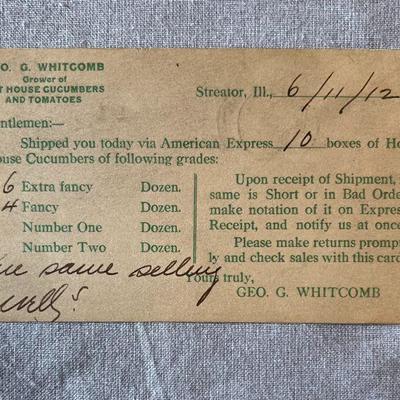 EO. G. WHITCOMB
Grower of
T HOUSE CUCUMBERS
AND TOMATOES
Streator, Ill., 6/11/12
entlemen:—
Shipped you today via American Express 10 boxes of Ho
ouse Cucumbers of following grades:
6 Extra fancy Dozen.
4 Fancy Dozen.
Number One Dozen.
Number Two Dozen.
Upon receipt of Shipment, i
same is Short or in Bad Orde
make notation of it on Expres
Receipt, and notify us at once
Please make returns prompt
ly and check sales with this card
are same selling
Yours truly,
well?
GEO. G. WHITCOMB